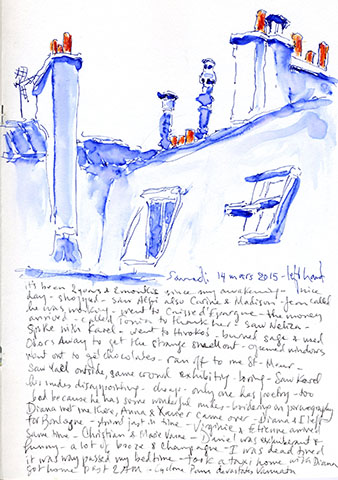 Samedi 14 mars 2015 - left hand
it's been 2 years & 2 months since my awakening - nice
day - shopped - saw Alfi also Corine & Madison - Jean called
he was working - went to Caisse d'Epargne - the money
arrived - called to thank her - saw
Spoke with Karel - went to - burned sage & used
Odors Away to get the strange smell out - opened windows
went out to get chocolates - ran off to me St-Maur -
Saw Yall outside, same crowd exhibiting - boring - Saw Karel
his nudes disappointing - cheap - only one has poetry - too
bad because he has some wonderful nudes - bordering on pornography
Diana met me there, Anna & Xavier came over - Diana & I left
for Bondage - arrived just in time - Virginie & Etienne arrived
same time - Christian & Marie - Daniel was exuberant &
funny - a lot of booze & champagne - I was dead tired
it was way passed my bedtime - took a taxi home with Diana
got home past 2 AM - Cyclone Pam devastates Vanuatu